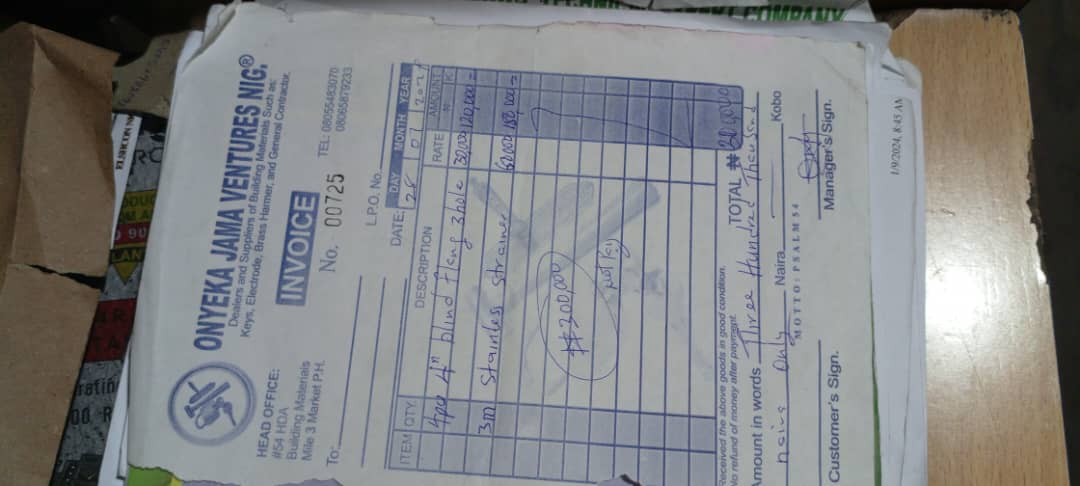 COMPANY
ONYEKA JAMA VENTURES NIG®
Dealers and Suppliers of Building Materials Such as:
Keys, Electrode, Brass Harmer, and General Contractor.
HEAD OFFICE:
#54 HDA
Building Materials
Mile 3 Market P.H.
INVOICE
TEL: 08055483070
08065879233
No. 00725
To:
L.P.O. No.
DATE: DAY MONTH YEAR
28 07
ITEM QTY. DESCRIPTION RATE AMOUNT
₦ K
4pc 4" blind flang 3hole 30,000 120,000=
3m stainless strainer 60000 180,000=
₦300,000
not pay
Received the above goods in good condition.
No refund of money after payment.
TOTAL ₦ 300,000
Amount in words Three Hundred Thousand
naira only Naira Kobo
MOTTO: PSALM 54
Customer's Sign. Manager's Sign.
1/9/2024, 8:45 AM